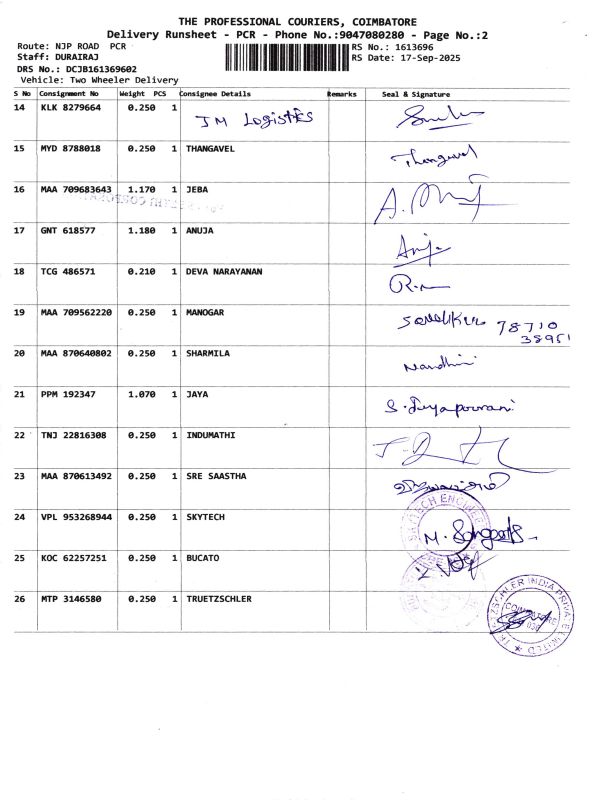 THE PROFESSIONAL COURIERS, COIMBATORE
Delivery Runsheet - PCR - Phone No.:9047080280 - Page No.:2
Route: NJP ROAD PCR
RS No.: 1613696
Staff: DURAIRAJ
RS Date: 17-Sep-2025
DRS No.: DCJB161369602
Vehicle: Two Wheeler Delivery
S No Consignment No Weight PCS Consignee Details Remarks Seal & Signature
14 KLK 8279664 0.250 1 JM Logistics
15 MYD 8788018 0.250 1 THANGAVEL Thangavel
16 MAA 709683643 1.170 1 JEBA
17 GNT 618577 1.180 1 ANUJA Anuja
18 TCG 486571 0.210 1 DEVA NARAYANAN
19 MAA 709562220 0.250 1 MANOGAR 78710
38951
20 MAA 870640802 0.250 1 SHARMILA Nandhini
21 PPM 192347 1.070 1 JAYA
22 TNJ 22816308 0.250 1 INDUMATHI
23 MAA 870613492 0.250 1 SRE SAASTHA
24 VPL 953268944 0.250 1 SKYTECH
25 KOC 62257251 0.250 1 BUCATO
26 MTP 3146580 0.250 1 TRUETZSCHLER